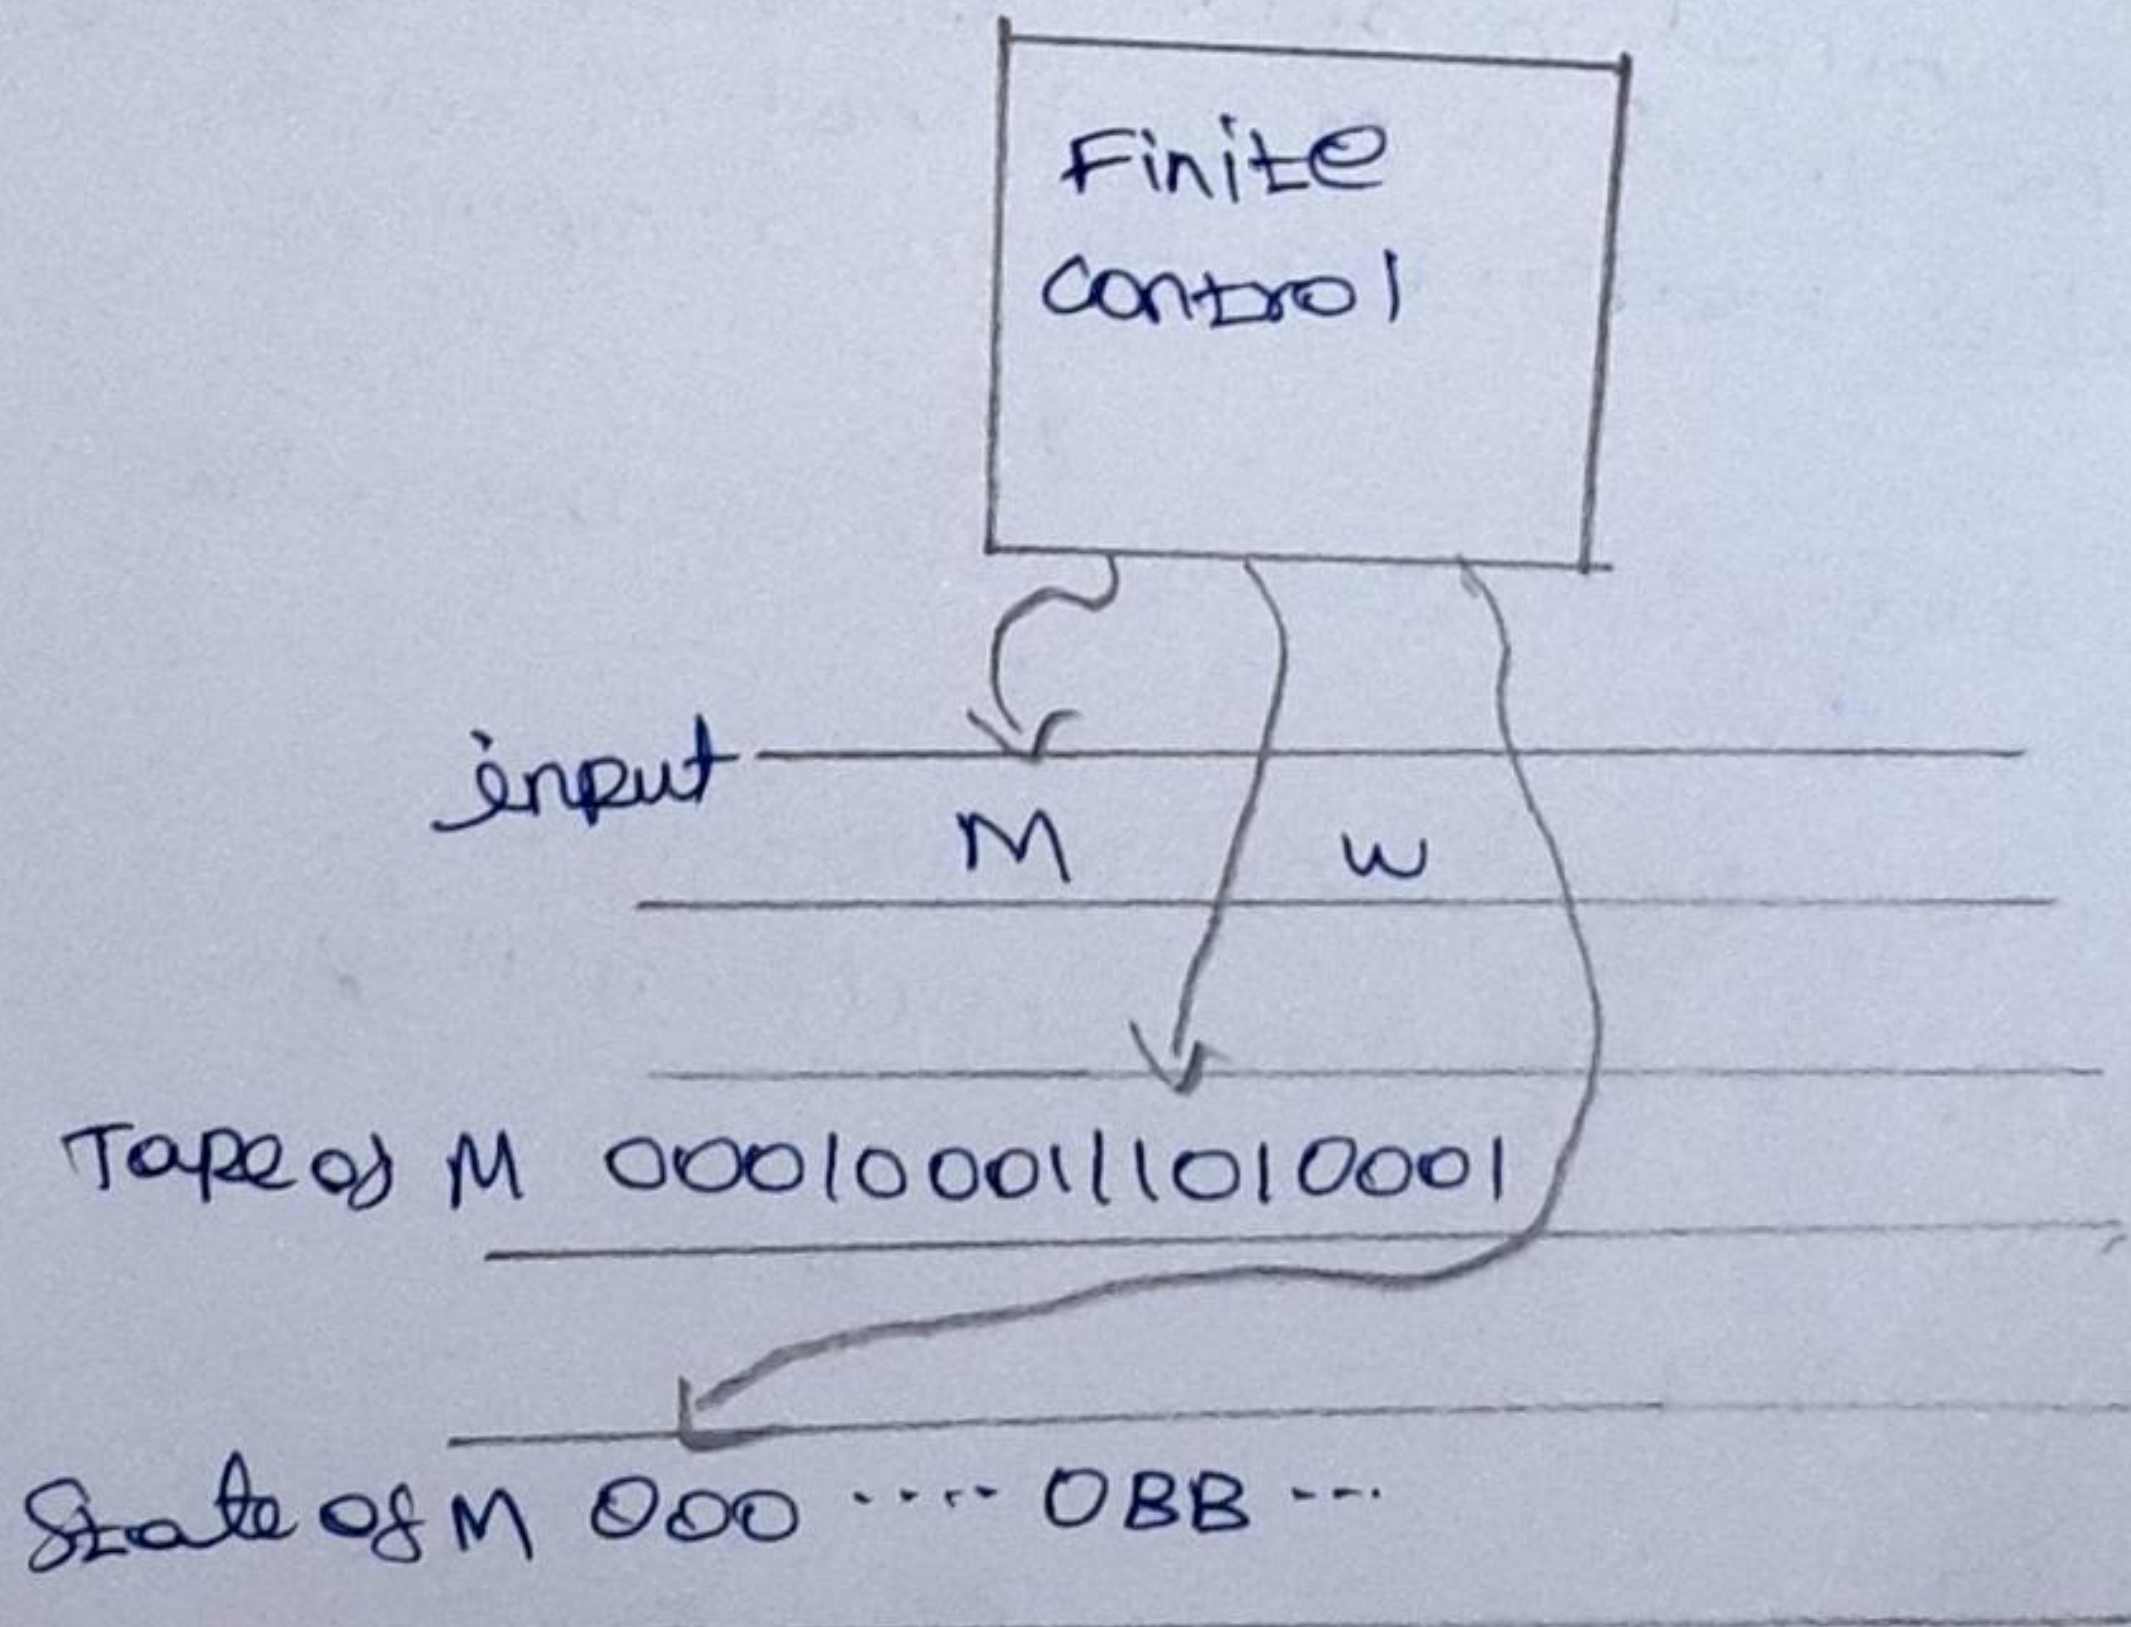 Finite
control
input
M w
Tape of M 0001000111010001
State of M 000 ..... 0BB ---.